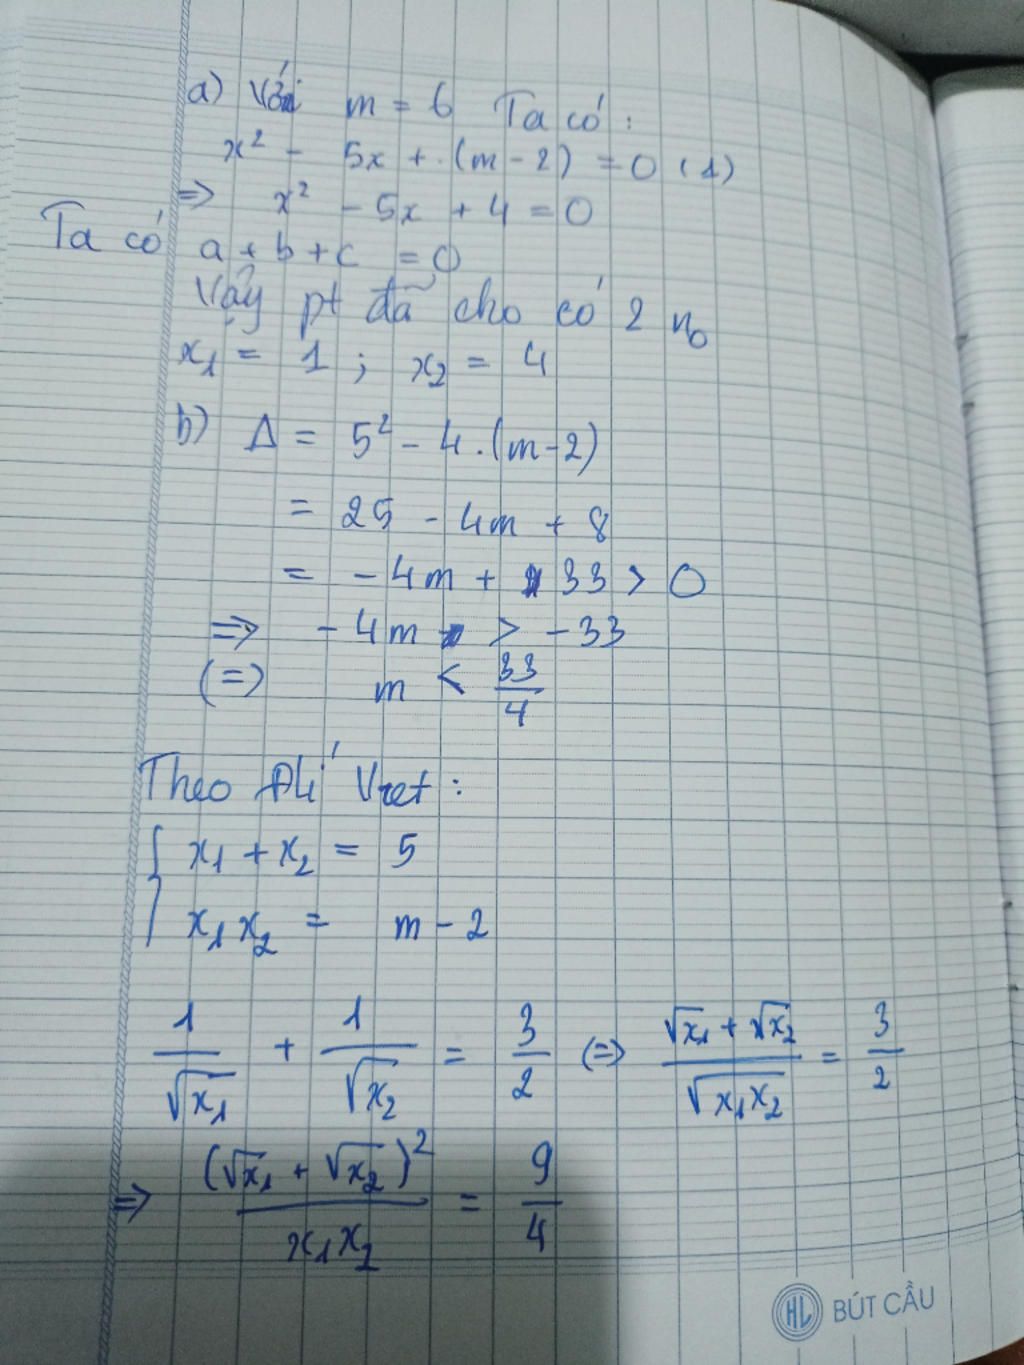 a) Với m = 6 Ta có :
x² - 5x + (m - 2) = 0 (1)
=> x² - 5x + 4 = 0
Ta có a + b + c = 0
Vậy pt đã cho có 2 n₀
x₁ = 1 ; x₂ = 4
b) Δ = 5² - 4 . (m - 2)
= 25 - 4m + 8
= - 4m + 33 > 0
=> - 4m > - 33
(=) m < 33/4
Theo Đlí Viet :
{ x₁ + x₂ = 5
x₁ x₂ = m - 2
1/√x₁ + 1/√x₂ = 3/2 (=) (√x₁ + √x₂)/√x₁x₂ = 3/2
=> (√x₁ + √x₂)²/x₁x₂ = 9/4
HL BÚT CẦU